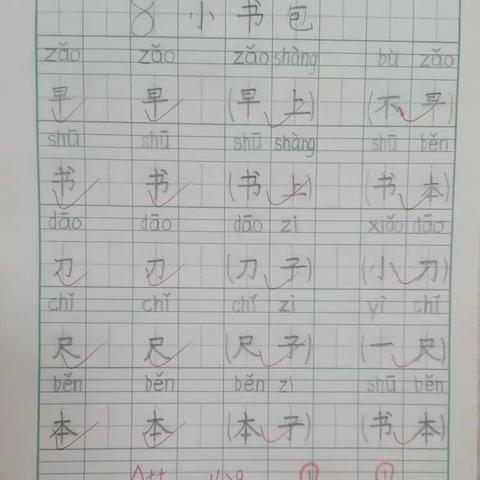 8 小书包
zǎo zǎo zǎo shàng bù zǎo
早 早 (早上) (不早)
shū shū shū shàng shū běn
书 书 (书上) (书本)
dāo dāo dāo zi xiǎo dāo
刀 刀 (刀子) (小刀)
chǐ chǐ chǐ zi yì chǐ
尺 尺 (尺子) (一尺)
běn běn běn zi shū běn
本 本 (本子) (书本)
A++ ① ①